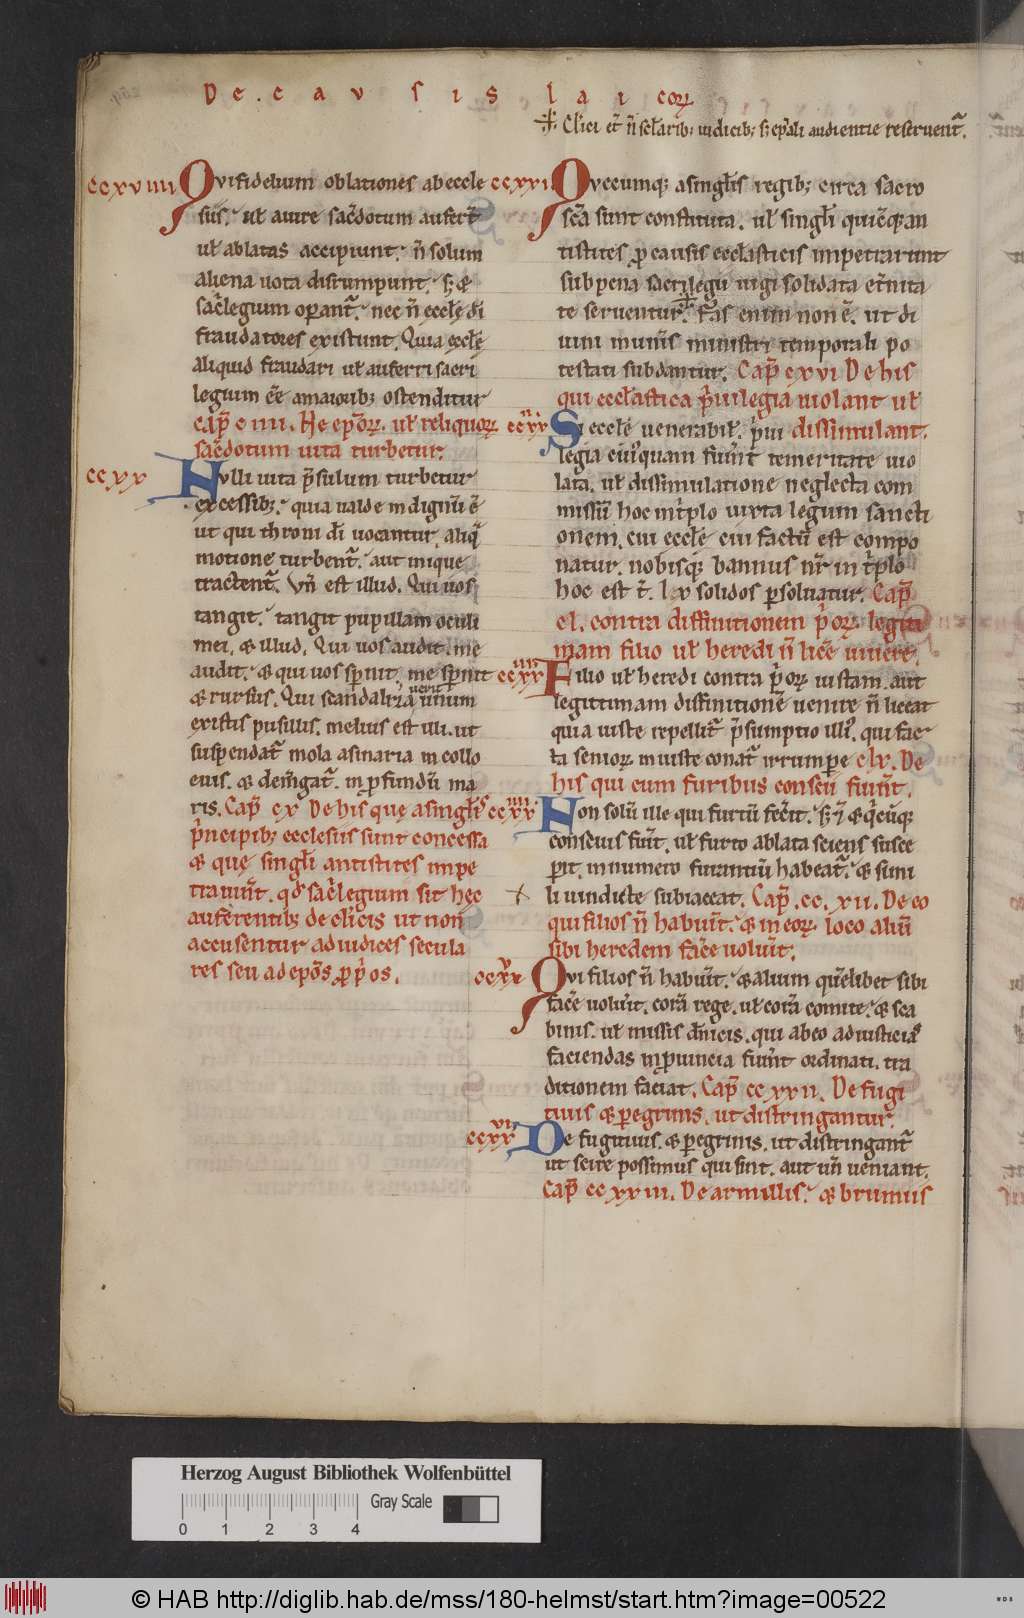 De causis laicorꝝ
Cl̓ici et̄ ñ sɫarib; iudicib; s; ep̄ali audientie reseruent᷑.
ccxviiii Qui fidelium oblationes ab eccle
siis. uɫ a iure sac̄dotum aufert̄
uɫ ablatas accipiunt. ñ solum
aliena uota disrumpunt. s; &
sac̄legium operant᷑. nec ñ eccłę di
fraudatores existunt. Quia ęccłę
aliquid fraudari uɫ auferri sacri
legium eē a maiorib; ostenditur
cap̄ c iiii. Ne ep̄orꝝ. uɫ reliquorꝝ
sac̄dotum uita turbetur.
ccxx Nulli uita p̄sulum turbetur
excessib;. quia ualde indignū ē
ut qui throni di uocantur. aliq̄
motione turbent᷑. aut inique
tractent᷑. Vñ est illud. Qui uos
tangit. tangit pupillam oculi
mei. & illud. Qui uos audit. me
audit. & qui uos sp̄nit. me sp̄nit
& rursus. Qui scandalizauerit unum
existis pusillis. melius est illi. ut
suspendat᷑ mola asinaria in collo
eius. & dem̄gat᷑. in p̱fundū ma
ris. Cap̄ cx De his quę a singlis
p̓ncipib; ecclesiis sunt concessa
& quę singłi antistites impe
trauūt. qd̓ sac̄legium sit hęc
auferentib; de cl̓icis ut non
accusentur ad iudices secula
res seu ad ep̄os p̱p̓os.
ccxxi Quecumq; a singłis regib; circa sacro
scā sunt constituta. uɫ singłi quicq̄ an
tistites p̱ causis eccłasticis impetrarunt
sub pena sacrilegii uigi solidata et̓nita
te seruentur. Fas enim non ē. ut di
uini munis̄ ministri temporali po
testati subdantur. Cap̄ cxvi De his
qui eccłastica p̓uilegia uiolant uɫ
dissimulant.
ccxxii Si eccłę uenerabił. p̓ui
legia cuiꝰquam fiunt temeritate uio
lata. uɫ dissimulatione neglecta com
missū hoc int̓plo iuxta legum sancti
onem. cui eccłę cui factū est compo
natur. nobisq; bannus nr̄ in t̓plo
hoc est t̄. lx solidos p̱soluatur. Cap̄
cl. contra diffinitionem p̓orꝝ legitti
mam filio uɫ heredi ñ licē uiuere.
ccxxiii Filio uɫ heredi contra p̓orꝝ iustam. aut
legittimam diffinitionē uenire ñ liceat
quia iuste repellit᷑ p̄sumptio illiꝰ. qui fac
ta seniorꝝ iniuste conat᷑ irrumpe clv. De
his qui cum furibus conscii fiunt.
ccxxiiii Non solū ille qui furtū fec̓it. s; & q̓cūq;
conscius fūit. uɫ furto ablata sciens susce
p̱it. in numero furantiū habeat᷑. & simi
li uindictę subiaceat. Cap̄ .cc. xii. De eo
qui filios ñ habuit̄. & in eorꝝ loco aliū
sibi heredem facē uoluit̄.
ccxxv Qui filios ñ habuit̄. & alium quēlibet sibi
facē uolūit. corā rege. uɫ corā comite. & sca
binis. uɫ missis dn̄icis. qui ab eo ad iusticiā
faciendas in p̱uincia fiunt ordinati. tra
ditionem faciat. Cap̄ ccxxii. De fugi
tiuis & p̱egrinis. ut distringantur.
ccxxvi De fugitiuis. & p̱egrinis. ut distringant᷑
ut scire possimus qui sint. aut uñ ueniant.
Cap̄ ccxxiii. De armillis. & bruniis
Herzog August Bibliothek Wolfenbüttel
Gray Scale
0 1 2 3 4
© HAB http://diglib.hab.de/mss/180-helmst/start.htm?image=00522